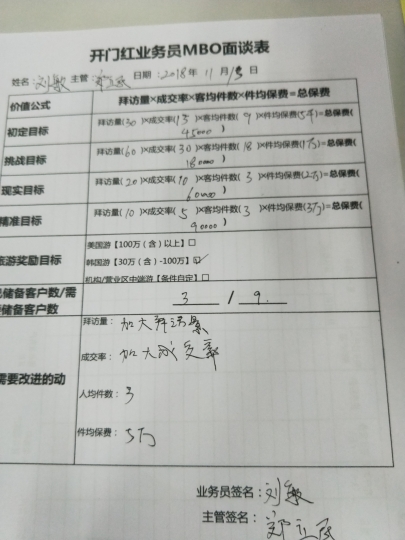 开门红业务员MBO面谈表
姓名:刘敏 主管 郑立民 日期:2018年11月15日
价值公式 拜访量×成交率×客均件数×件均保费=总保费
初定目标 拜访量(30)×成交率(15)×客均件数(9)×件均保费(5千)=总保费(
45000)
挑战目标 拜访量(60)×成交率(30)×客均件数(18)×件均保费(1万)=总保费(
180000)
现实目标 拜访量(20)×成交率(10)×客均件数(3)×件均保费(2万)=总保费(
60000)
精准目标 拜访量(10)×成交率(5)×客均件数(3)×件均保费(3万)=总保费(
90000)
美国游【100万(含)以上】□
旅游奖励目标 韩国游【30万(含)-100万】☑
机构/营业区中端游【条件自定】□
储备客户数/需 3 / 9
储备客户数
拜访量:加大拜访量
成交率:加大成交率
需要改进的动
人均件数:3
件均保费:3万
业务员签名:刘敏
主管签名:郑立民